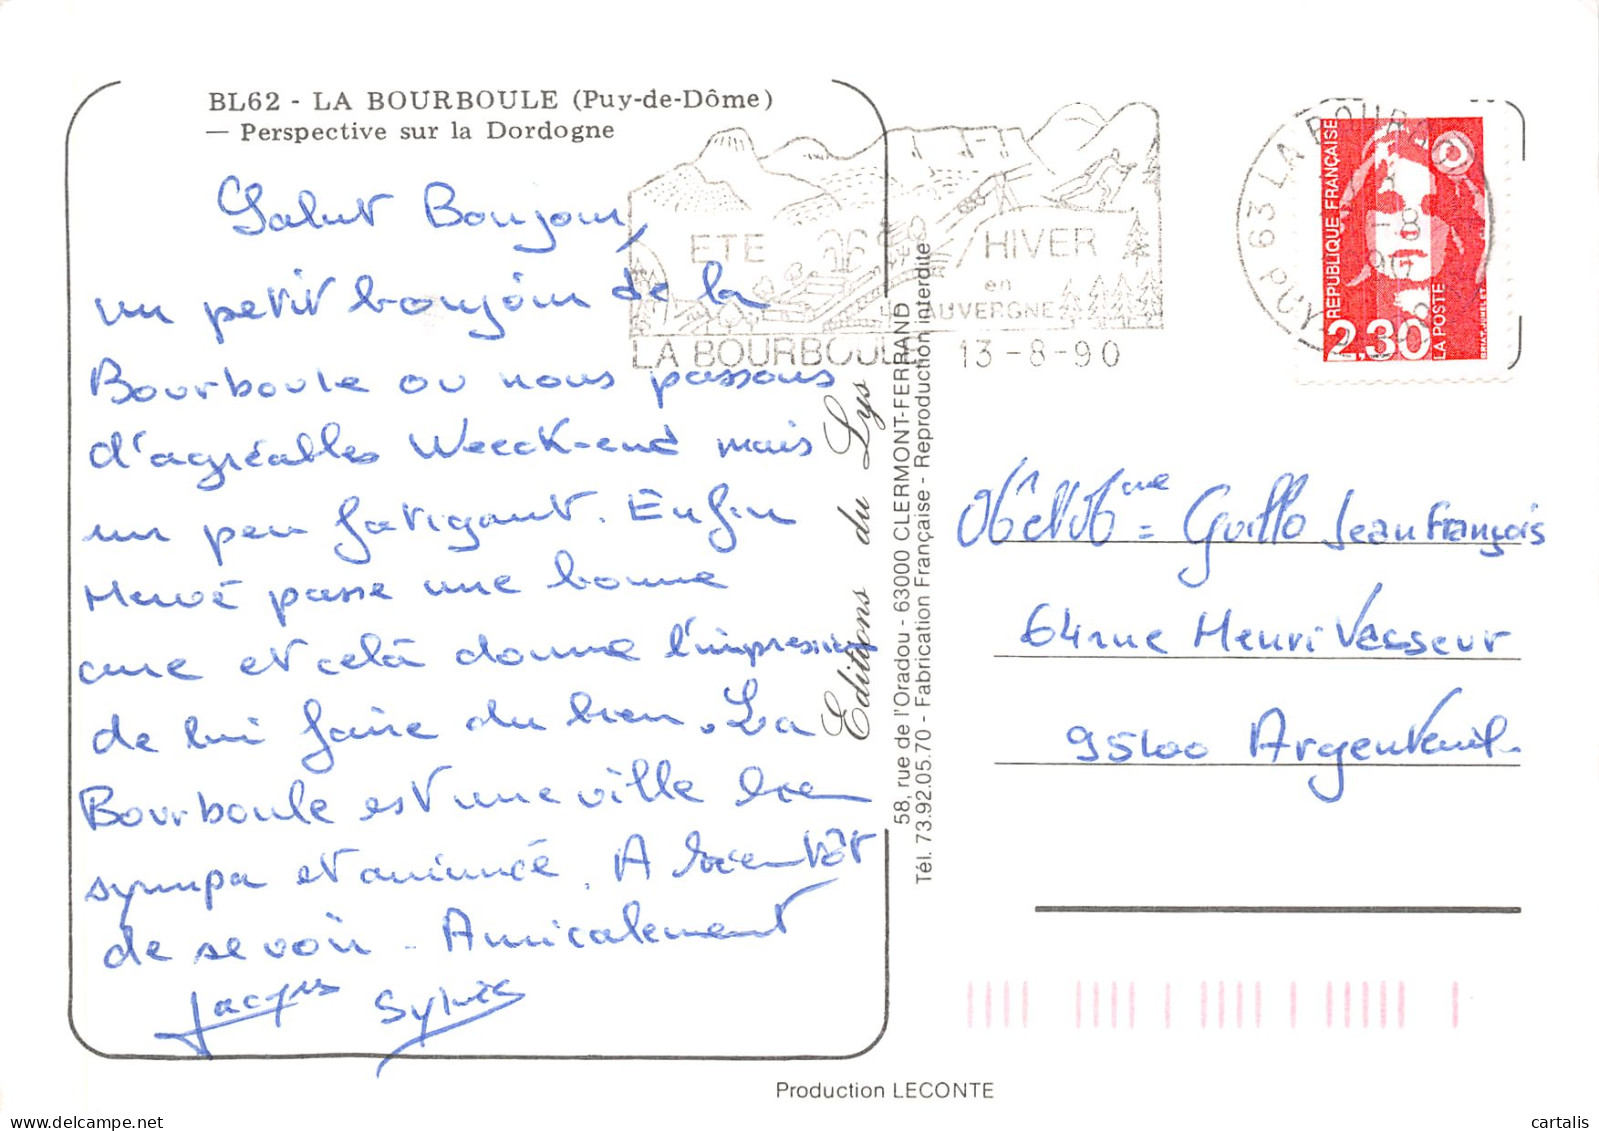 BL62 - LA BOURBOULE (Puy-de-Dôme)
— Perspective sur la Dordogne
Salut Bonjour,
un petit bonjour de la
Bourboule ou nous passons
d'agréables Weeck-end mais
un peu fatigant. Enfin
Hervé passe une bonne
cure et celà donne l'impression
de lui faire du bien. La
Bourboule est une ville bien
sympa et animée. A bientôt
de se voir. Amicalement
Jacques Sylvie
ETE
HIVER
en
AUVERGNE
LA BOURBOULE 13-8-90
63 LA BOURBOULE
PUY
REPUBLIQUE FRANÇAISE
2,30
LA POSTE
Editions du Lys
58, rue de l'Oradou - 63000 CLERMONT-FERRAND
Tél. 73.92.05.70 - Fabrication Française - Reproduction interdite
M et Mme Guillo Jean François
64 rue Henri Vasseur
95100 Argenteuil
Production LECONTE
cartalis